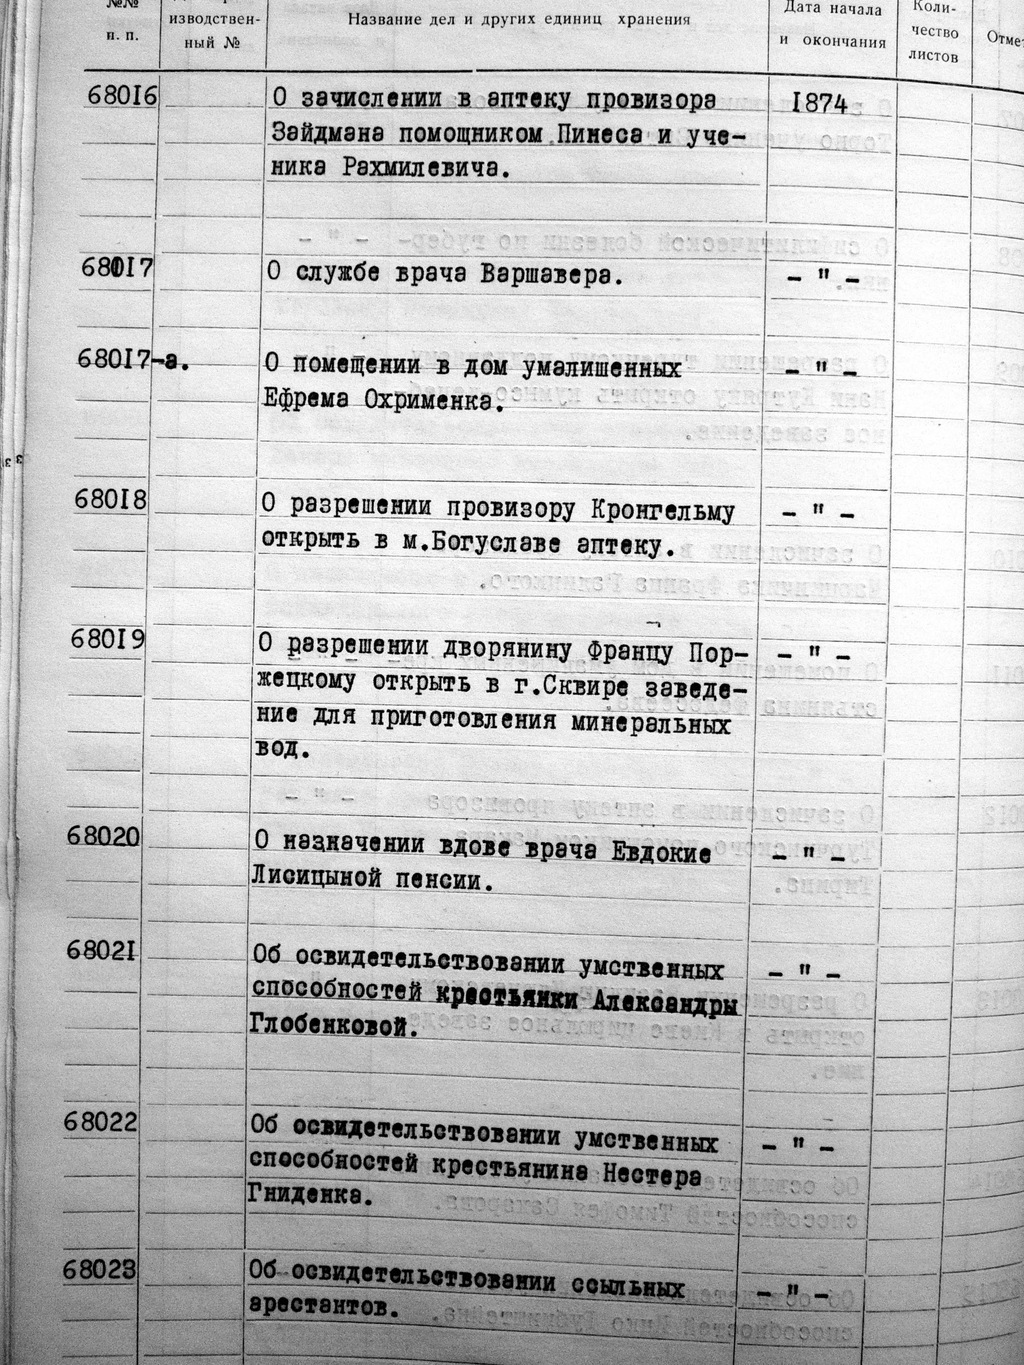 №№
п. п.
изводствен-
ный №
Название дел и других единиц хранения
Дата начала
и окончания
Коли-
чество
листов
68016
О зачислении в аптеку провизора
Зайдмана помощником Пинеса и уче-
ника Рахмилевича.
1874
68017
О службе врача Варшавера.
- " -
68017-а.
О помещении в дом умалишенных
Ефрема Охрименка.
- " -
68018
О разрешении провизору Кронгельму
открыть в м.Богуславе аптеку.
- " -
68019
О разрешении дворянину Францу Пор-
жецкому открыть в г.Сквире заведе-
ние для приготовления минеральных
вод.
- " -
68020
О назначении вдове врача Евдокие
Лисицыной пенсии.
- " -
68021
Об освидетельствовании умственных
способностей крестьянки Александры
Глобенковой.
- " -
68022
Об освидетельствовании умственных
способностей крестьянина Нестера
Гниденка.
- " -
68023
Об освидетельствовании ссыльных
арестантов.
- " -